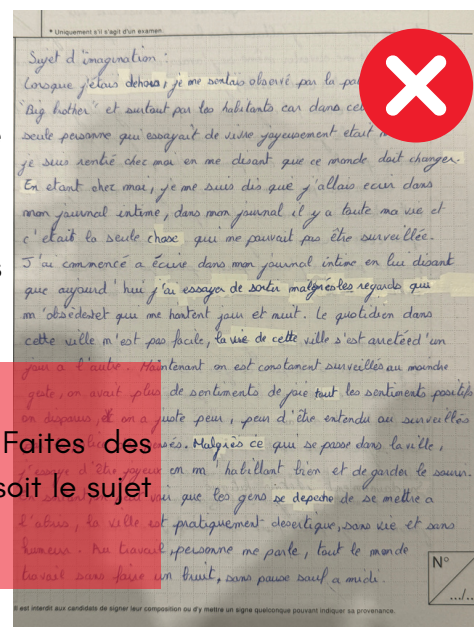 * Uniquement s'il s'agit d'un examen.
Sujet d'imagination :
Lorsque j'étais dehors, je me sentais observé par la
"Big brother" et surtout par les habitants car dans
seule personne qui essayait de vivre joyeusement etait
je suis rentré chez moi en me disant que ce monde doit changer.
En etant chez moi, je me suis dis que j'allais ecrir dans
mon journal intime, dans mon journal il y a toute ma vie et
c'etait la seule chose qui me pouvait pas être surveillée.
J'ai commencé a écrire dans mon journal intime en lui disant
que aujourd'hui j'ai essayer de sortir malgrés les regards qui
m'obsèdent qui me hantent jour et nuit. Le quotidien dans
cette ville m'est pas facile, la vie de cette ville s'est arretéed'un
jour a l'autre. Maintenant on est constament surveillés au moindre
geste, on avait plus de sentiments de joie tout les sentiments positifs
on disparus, et on a juste peur, peur d'être entendu ou surveillés
Malgrès ce qui se passe dans la ville,
j'essaye d'être joyeux en m'habillant bien et de garder le sourir.
voir que les gens se depeche de se mettre a
l'abris, la ville est pratiquement desertique, sans vie et sans
humeur. Au travail, personne me parle, tout le monde
travail sans faire un bruit, sans pause sauf a midi.
Faites des
soit le sujet
N°
.../...
Il est interdit aux candidats de signer leur composition ou d'y mettre un signe quelconque pouvant indiquer sa provenance.